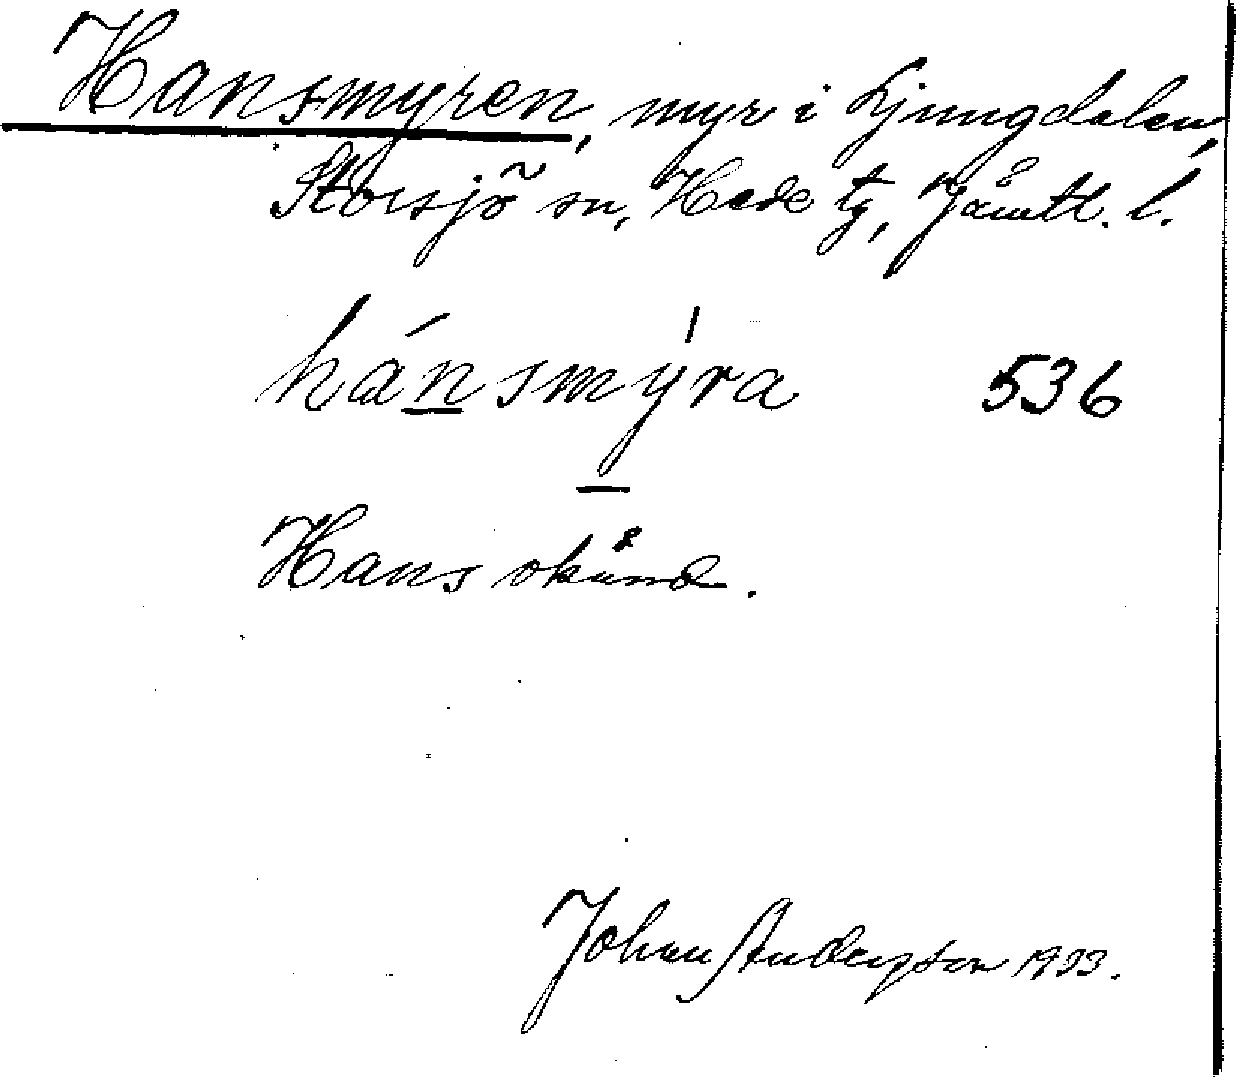 Hansmyren, myr i Ljungdalen,
Storsjö sn, Hede tg, Jämtl. l.
hánsmýra 536
Hans okänd.
Johan Anderson 1933.